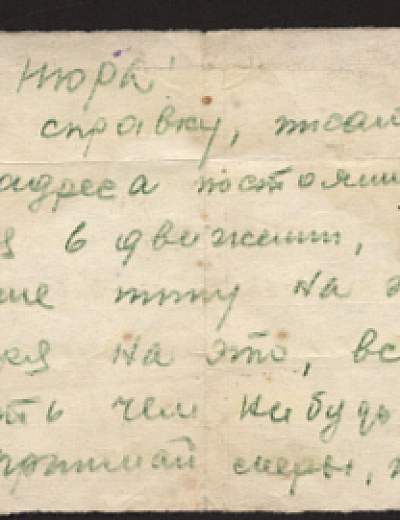 Нюра!
справку, писал
адреса постоянн
я в движении,
ше типу на э
кя на это, вс
ть чем нибудь
принимай меры, п